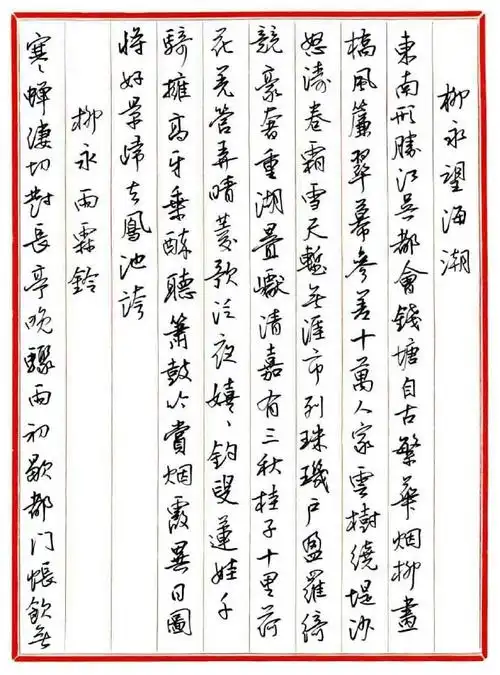 柳永望海潮
東南形勝江吳都會錢塘自古繁華烟柳畫
橋風簾翠幕參差十萬人家雲樹繞堤沙
怒濤卷霜雪天塹无涯市列珠璣戶盈羅綺
競豪奢重湖疊巘清嘉有三秋桂子十里荷
花羌管弄晴菱歌泛夜嬉々釣叟蓮娃千
騎擁高牙乘醉聽簫鼓吟賞烟霞異日圖
將好景歸去鳳池誇
柳永雨霖鈴
寒蟬淒切對長亭晚驟雨初歇都門悵飲无